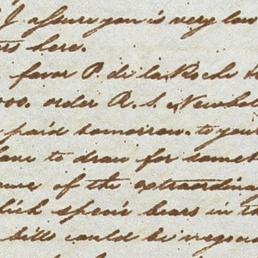 I assure you is very low
here.
favor P. de la Roche
000. order R. S. Newbol
paid tomorrow. to your
have to draw for some
of the extraordina
hich specie bears in th
bills could be negocia